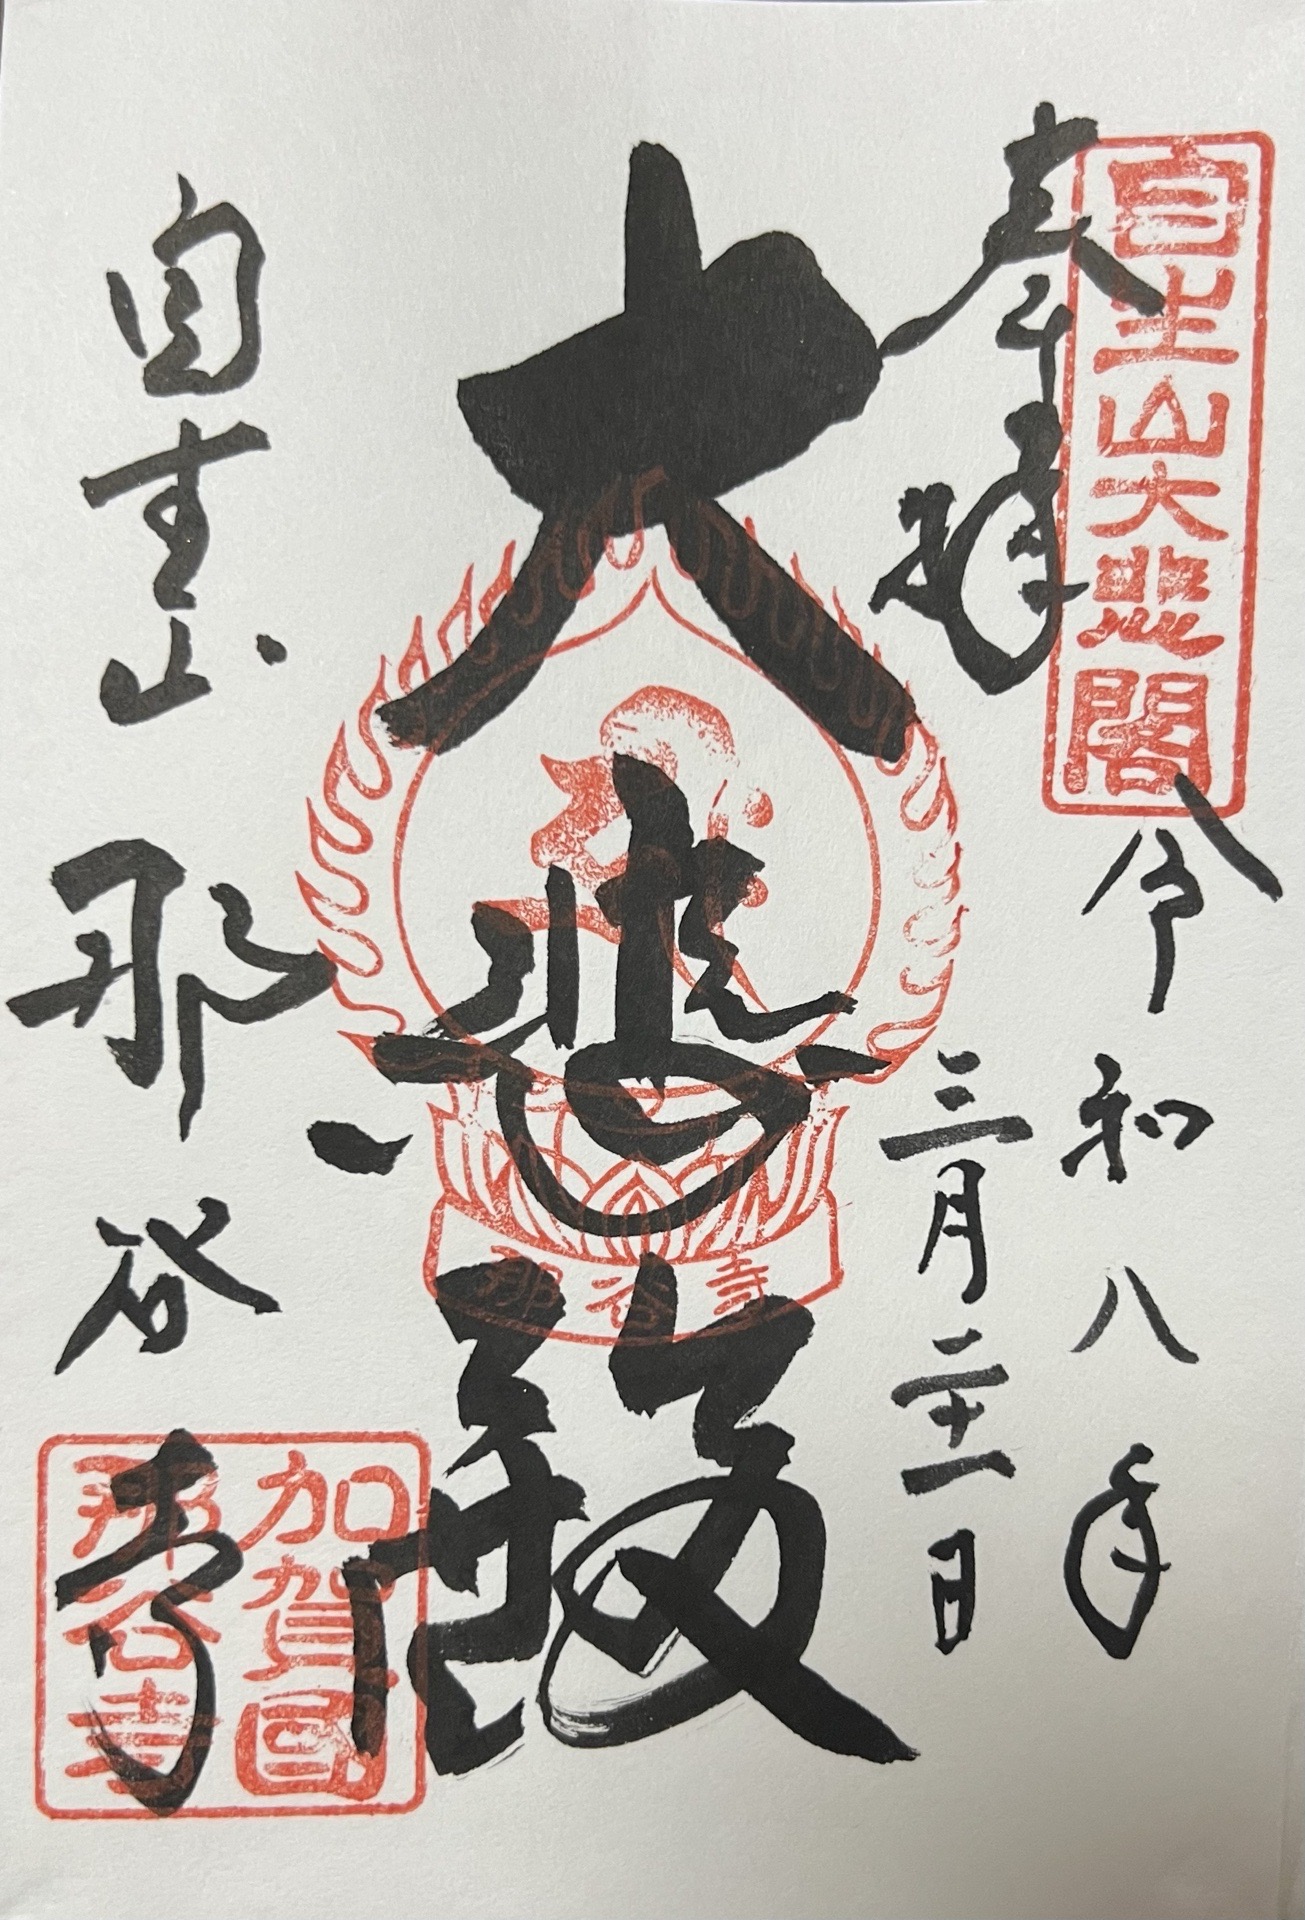 自生山大悲閣
奉拝
令和八年
三月二十一日
大悲殿
那谷寺
自生山
那谷寺
加賀國
那谷寺